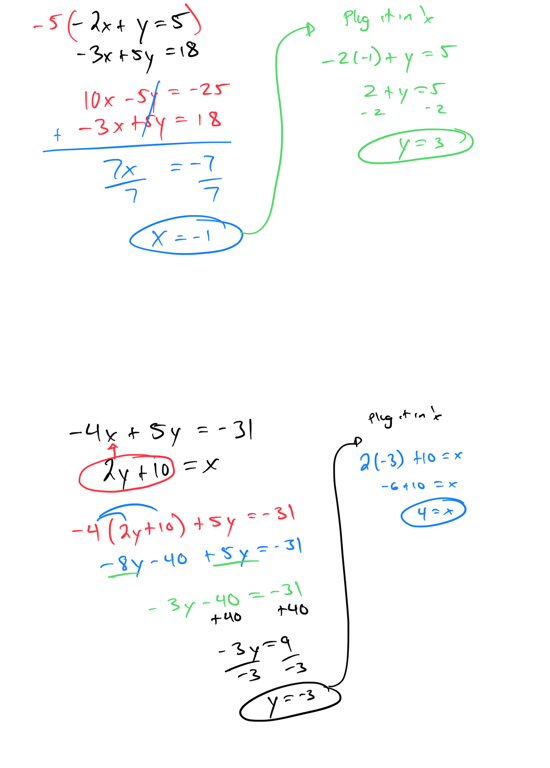 -5(-2x + y = 5)
-3x + 5y = 18
10x - 5y = -25
+ -3x + 5y = 18
7x = -7
7 7
x = -1
Plug it in 'x
-2(-1) + y = 5
2 + y = 5
-2 -2
y = 3
-4x + 5y = -31
2y + 10 = x
-4(2y + 10) + 5y = -31
-8y - 40 + 5y = -31
-3y - 40 = -31
+40 +40
-3y = 9
-3 -3
y = -3
Plug it in 'x
2(-3) + 10 = x
-6 + 10 = x
4 = x